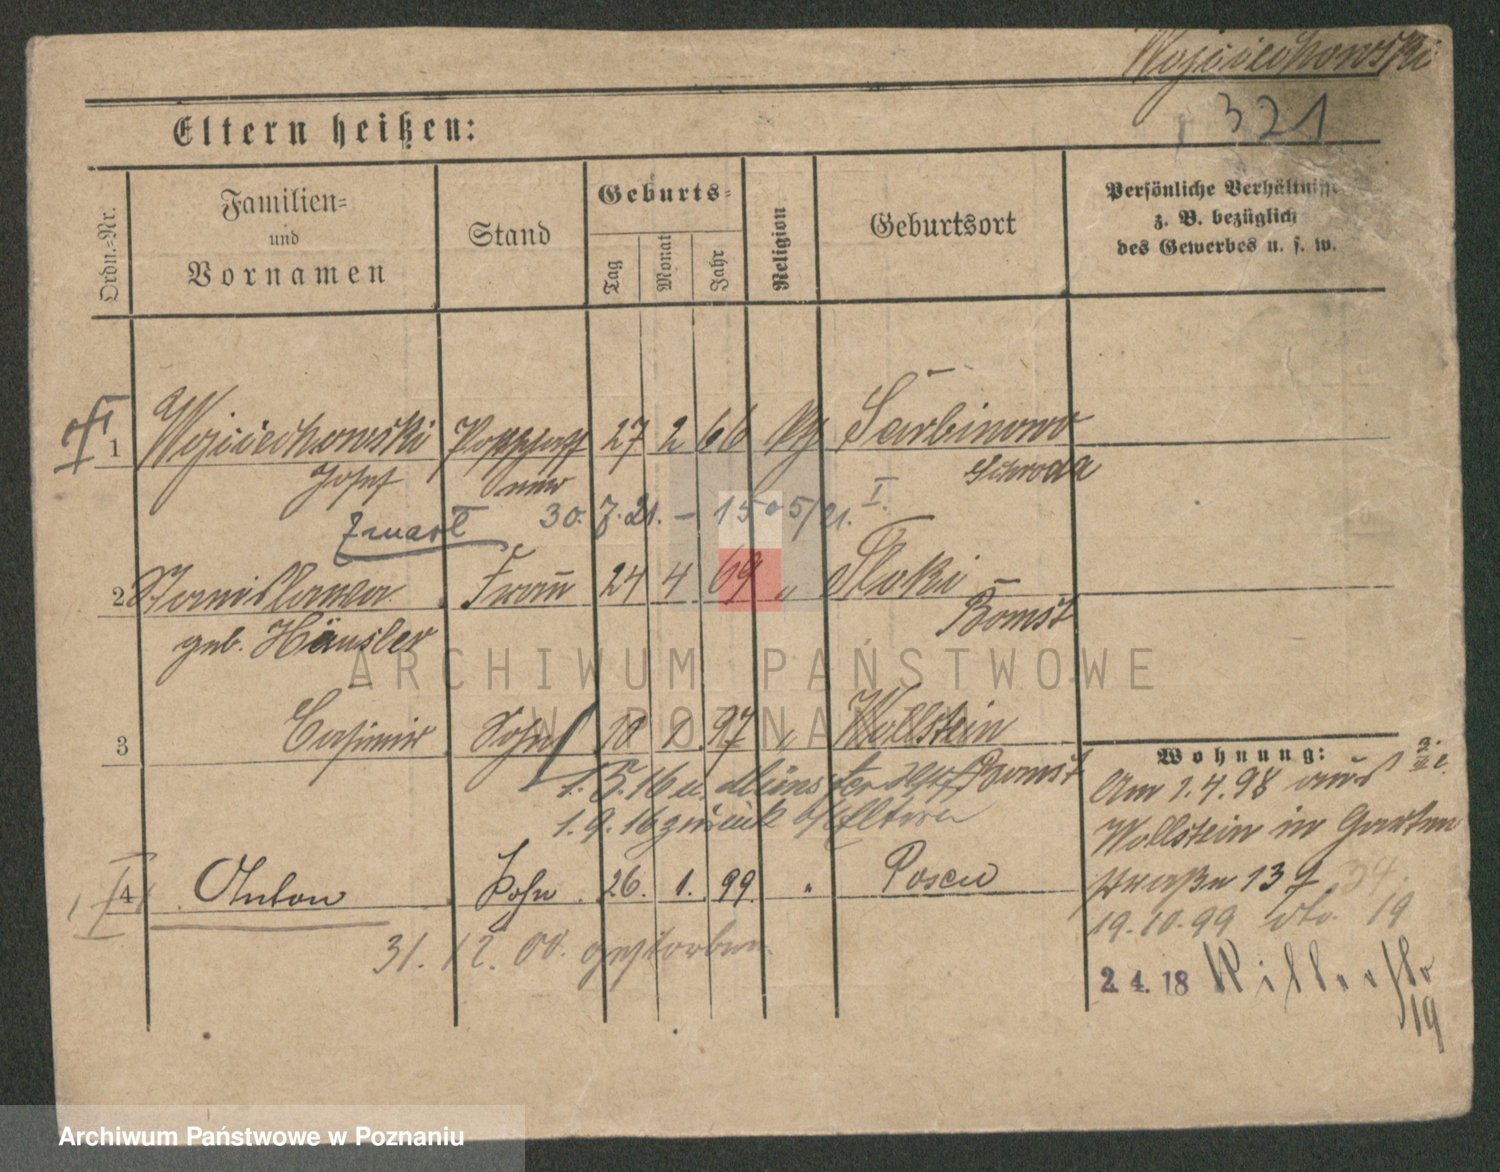 Wojciechowski
321
Eltern heißen:
Ordn.-Nr.
Familien-
und
Vornamen
Stand
Geburts-
Tag
Monat
Jahr
Religion
Geburtsort
Persönliche Verhältnisse
z. B. bezüglich
des Gewerbes u. s. w.
1 Wojciechowski 27 2 66 Sarbinowo
Josef Schroda
Zmarł 30. 7. 21. – 1505/21. I.
2 Stanislawa Frau 24 4 69 " Tloki
geb. Häusler Bomst
3 Casimir Sohn 10 1 97 " Wollstein
Bomst
1. 5. 16 n. Münster
1. 9. 16 zurück Eltern
4 Anton Sohn 26. 1. 99 " Posen
31. 12. 00. gestorben.
Wohnung:
Am 1.4.98 aus
Wollstein in Garten
straße 13 34.
19.10.99 dto. 19
2. 4. 18
19
ARCHIWUM PAŃSTWOWE
W POZNANIU
Archiwum Państwowe w Poznaniu